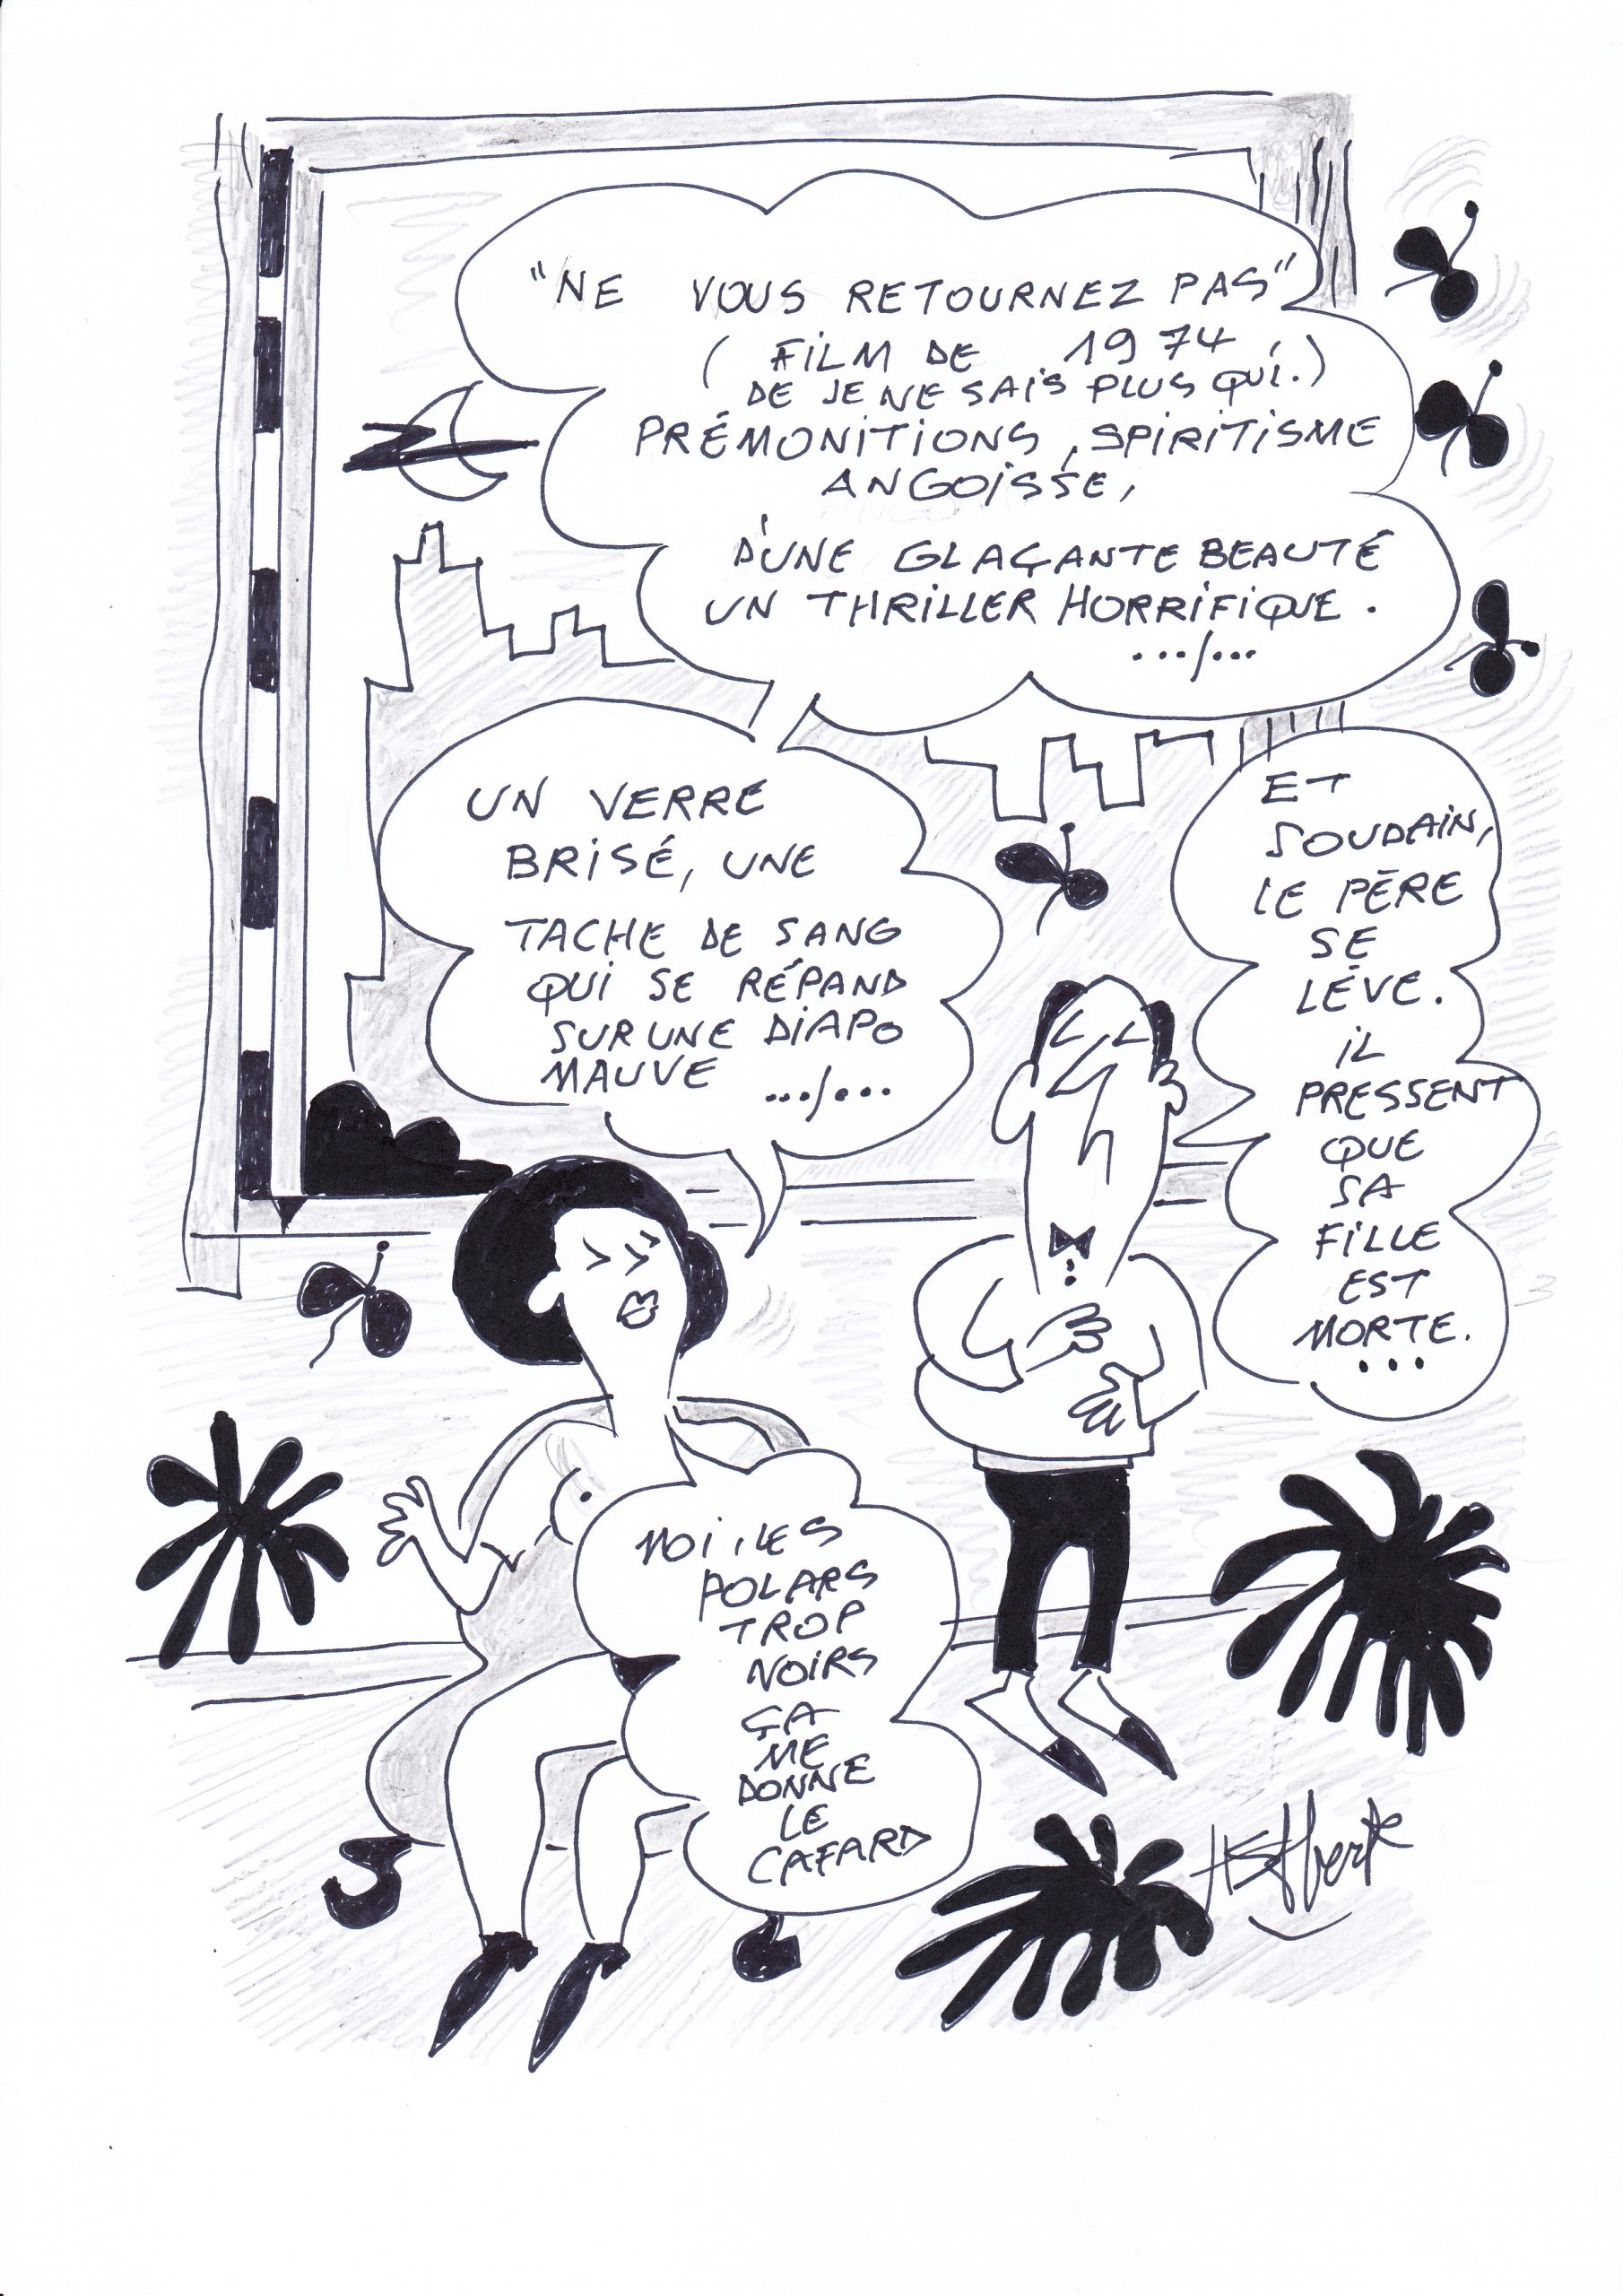 "NE VOUS RETOURNEZ PAS"
( FILM DE 1974
DE JE NE SAIS PLUS QUI.)
PRÉMONITIONS, SPIRITISME
ANGOISSE,
D'UNE GLAÇANTE BEAUTÉ
UN THRILLER HORRIFIQUE.
.../...
UN VERRE
BRISÉ, UNE
TACHE DE SANG
QUI SE RÉPAND
SUR UNE DIAPO
MAUVE .../...
ET
SOUDAIN,
LE PÈRE
SE
LÈVE.
IL
PRESSENT
QUE
SA
FILLE
EST
MORTE.
...
MOI, LES
POLARS
TROP
NOIRS
ÇA
ME
DONNE
LE
CAFARD